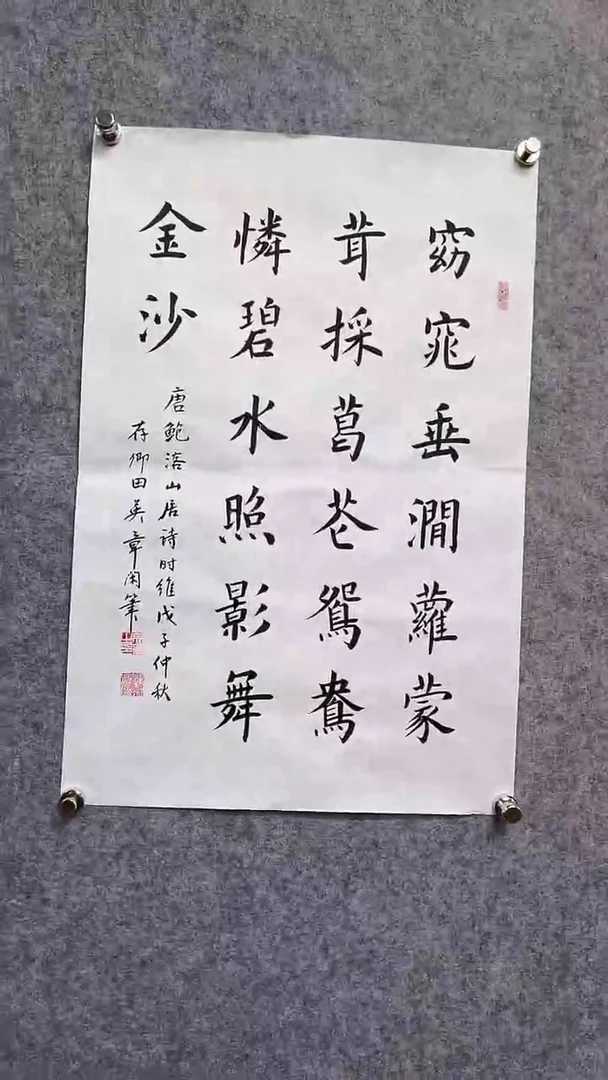 窈窕垂澗蘿蒙
茸採葛花鴛鴦
憐碧水照影舞
金沙
唐鲍溶山居诗时维戊子仲秋
存卿田英章闲笔